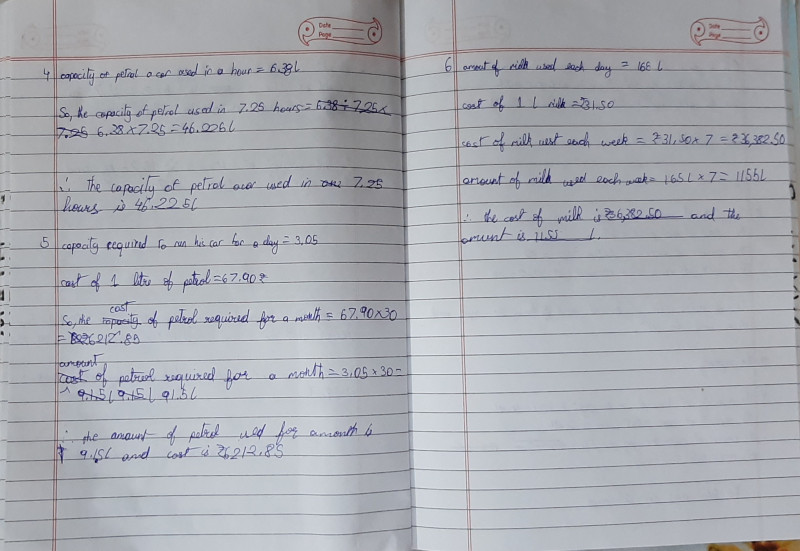 Date
Page
4 capacity of petrol a car used in a hour = 6.38L
So, the capacity of petrol used in 7.25 hours = 6.38 ÷ 7.25 x
7.25 6.38 x 7.25 = 46.225L
∴ The capacity of petrol a car used in one 7.25
hours is 46.225L
5 capacity required to run his car for a day = 3.05
cost of 1 litre of petrol = 67.90 ₹
cost
So, the capacity of petrol required for a month = 67.90 x 30
= 6212.85
amount
cost of petrol required for a month = 3.05 x 30 =
9.15L 9.15L 91.5L
∴ the amount of petrol used for a month is
9.15L and cost is ₹6212.85
Date
Page
6 amount of milk used each day = 165 L
cost of 1 L milk = ₹31.50
cost of milk use each week = ₹31.50 x 7 = ₹36,382.50
amount of milk used each week = 165L x 7 = 1155L
∴ the cost of milk is ₹36,382.50 and the
amount is 1155 L.